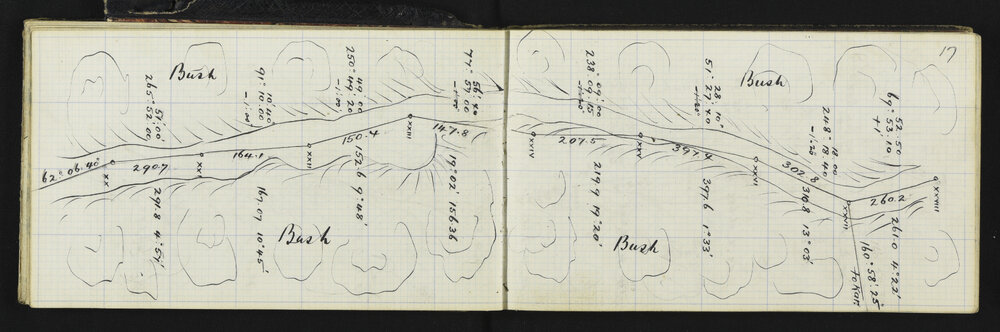 17
Bush
Bush
Bush
Bush
62° 06' 40"
XX
290.7
291.8 4° 57'
265° 52' 00"
57' 00"
164.1
167.07 10° 45'
91° 10' 00"
10' 40"
-1' 00"
XXII
150.4
152.6 9° 48'
250° 49' 20"
49' 00"
-1' 00"
XXIII
147.8
19° 02' 156.36
77° 57' 00"
56' 40"
XXIV
207.5
219.9 19° 20'
238° 09' 15"
09' 00"
XXV
397.4
397.6 1° 33'
51° 27' 40"
28' 10"
XXVI
302.8
310.8 13° 03'
248° 18' 40"
18' 00"
-1' 25"
XXVII
260.2
261.0 4° 22'
69° 53' 10"
52' 50"
XXVIII
160° 58' 25"